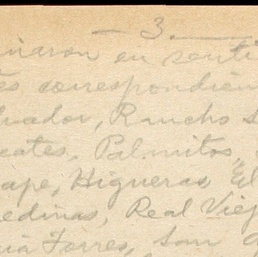 — 3. —
inaron en senti
es correspondien
lvador, Rancho S
cates, Palmitos,
ape, Higueras, El
edinas, Real Viej
ia Torres, San